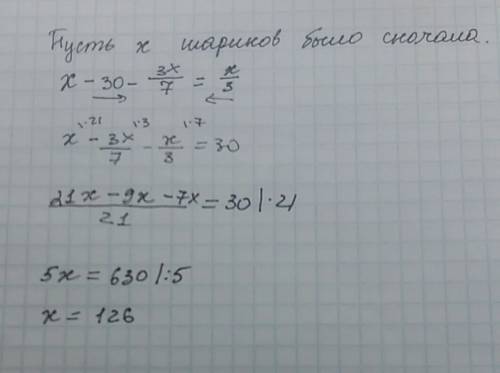 Пусть x шариков было сначала.
x - 30 - 3x/7 = x/3
x|·21 - 3x/7|·3 - x/3|·7 = 30
(21x - 9x - 7x)/21 = 30 |·21
5x = 630 |:5
x = 126